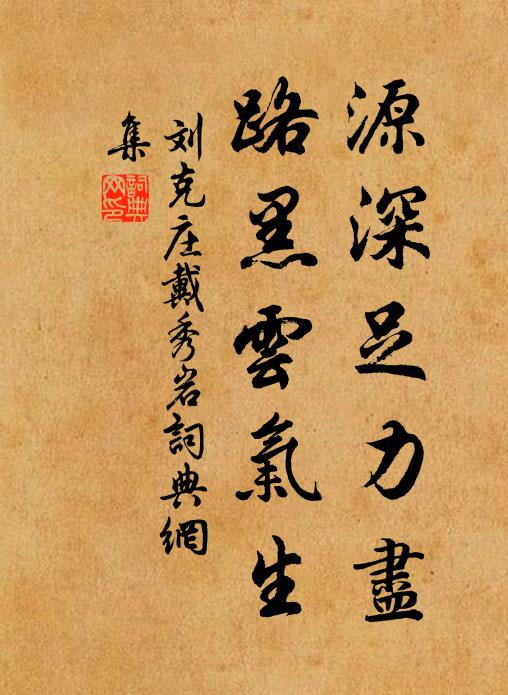 源深足力盡
路黑雲氣生
刘克庄戴秀岩詞典網
集
詞典
网印